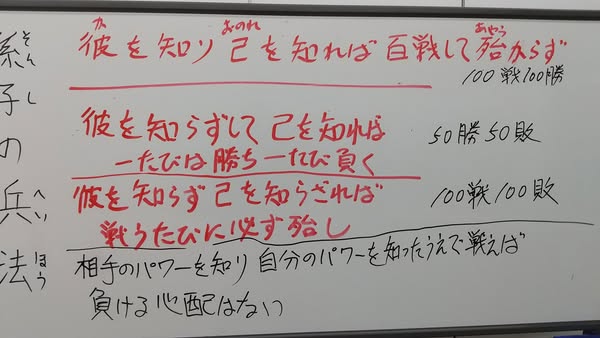 孫子の兵法
そんし
へいほう
かおのれあやう
彼を知り己を知れば百戦して殆からず
100戦100勝
彼を知らずして己を知れば
一たびは勝ち一たび負く
50勝50敗
彼を知らず己を知らざれば
戦うたびに必ず殆し
100戦100敗
相手のパワーを知り自分のパワーを知ったうえで戦えば
負ける心配はない